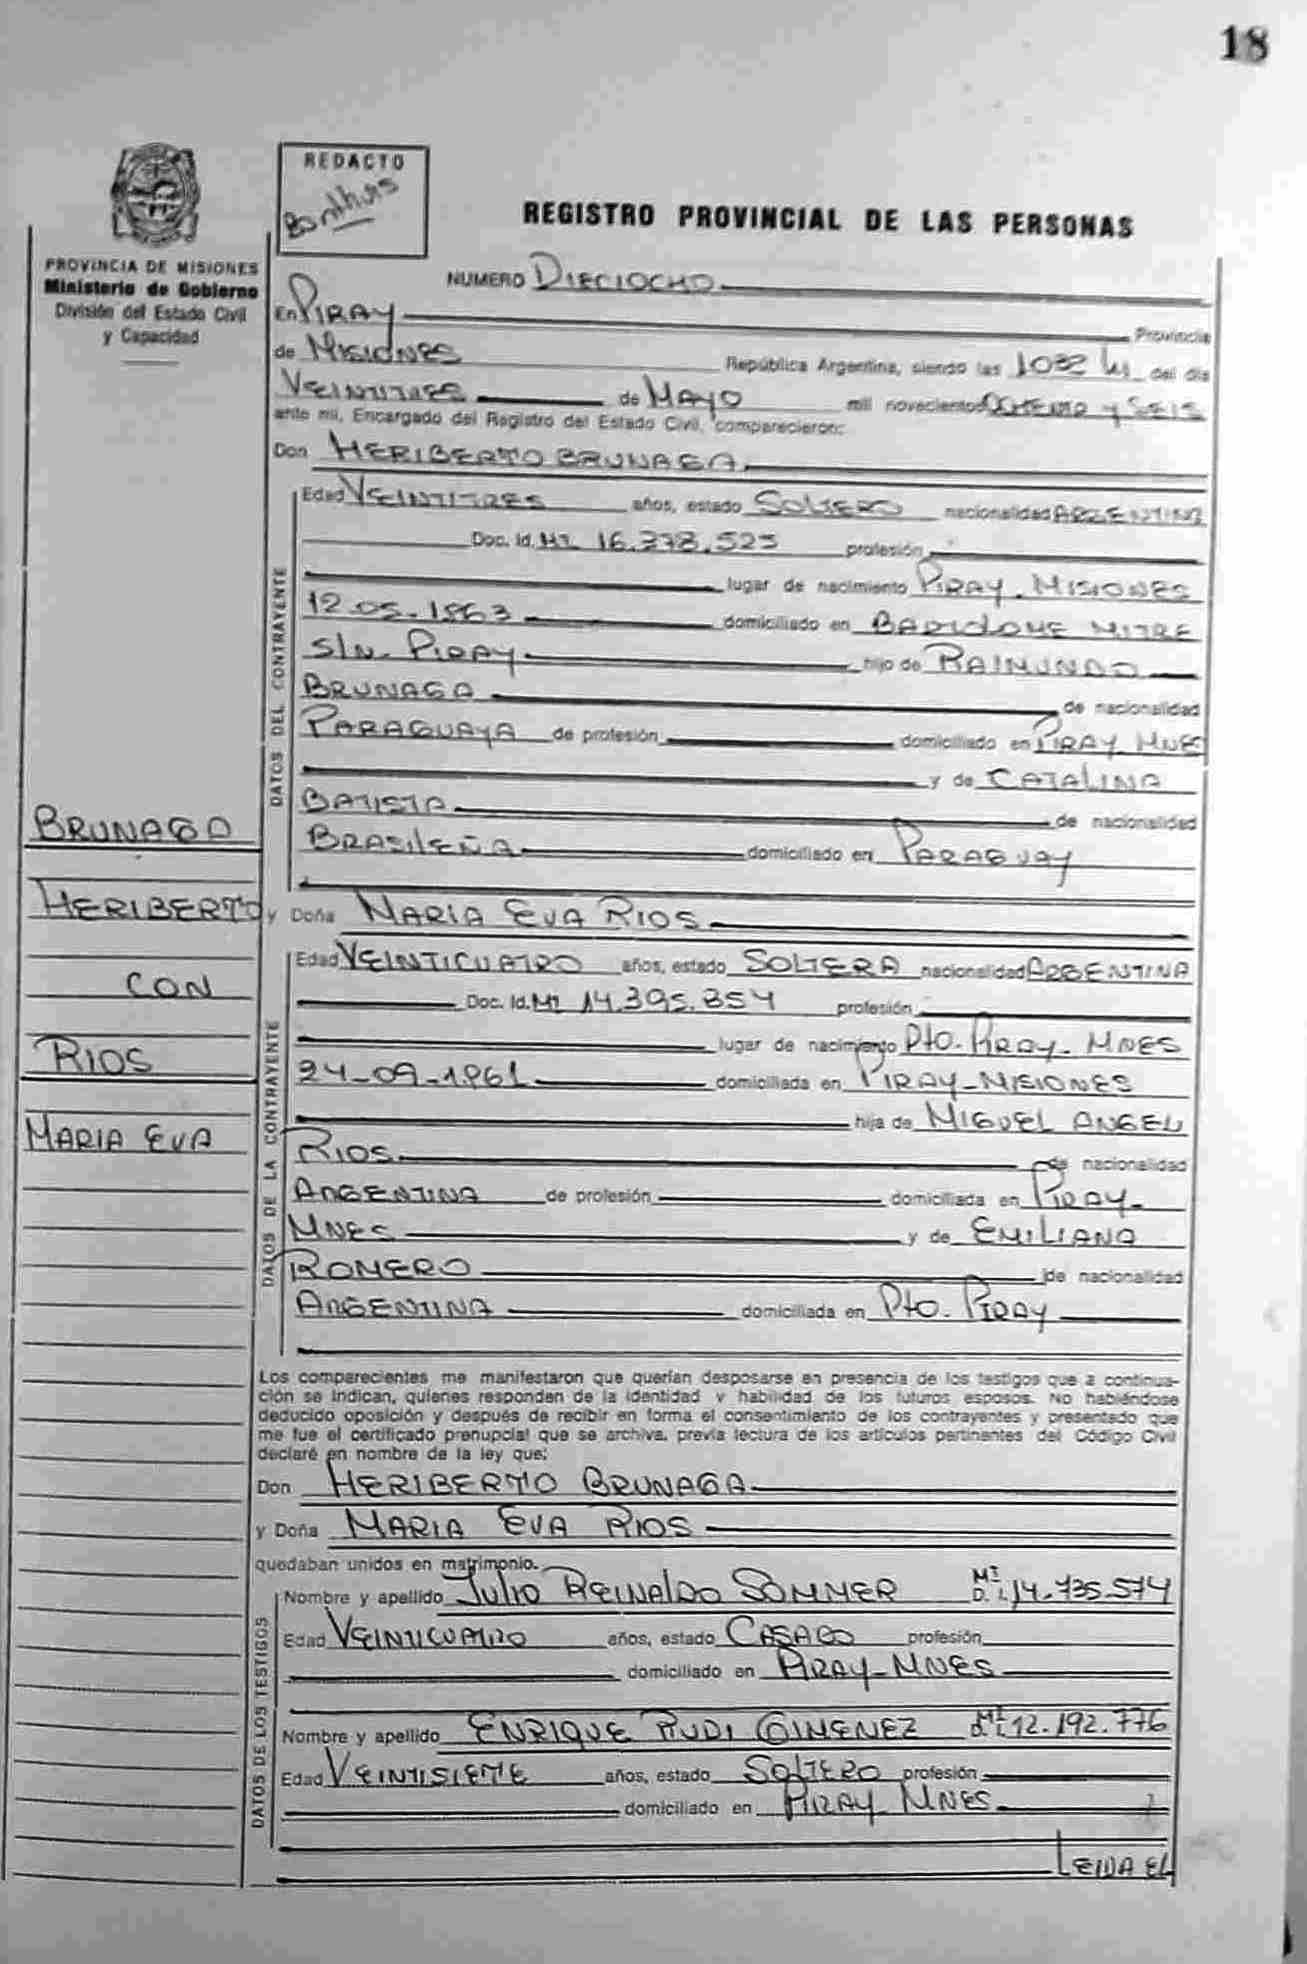 18
REDACTO
REGISTRO PROVINCIAL DE LAS PERSONAS
PROVINCIA DE MISIONES
Ministerio de Gobierno
División del Estado Civil
y Capacidad
NUMERO DIECIOCHO
En PIRAY Provincia
de MISIONES República Argentina, siendo las 1032 hs del día
VEINTITRES de MAYO mil novecientos OCHENTA Y SEIS
ante mi, Encargado del Registro del Estado Civil, comparecieron:
Don HERIBERTO BRUNAGA
DATOS DEL CONTRAYENTE
Edad VEINTITRES años, estado SOLTERO nacionalidad ARGENTINA
Doc. Id. MI 16.378.525 profesión
lugar de nacimiento PIRAY - MISIONES
12-05-1963 domiciliado en BARTOLOME MITRE
S/N- PIRAY hijo de RAIMUNDO
BRUNAGA de nacionalidad
PARAGUAYA de profesión domiciliado en PIRAY MNES
y de CATALINA
BATISTA de nacionalidad
BRASILEÑA domiciliado en PARAGUAY
BRUNAGA
HERIBERTO
CON
RIOS
MARIA EVA
y Doña MARIA EVA RIOS
DATOS DE LA CONTRAYENTE
Edad VEINTICUATRO años, estado SOLTERA nacionalidad ARGENTINA
Doc. Id. MI 14.395.854 profesión
lugar de nacimiento Pto. PIRAY - MNES
24-09-1961 domiciliada en PIRAY-MISIONES
hija de MIGUEL ANGEL
RIOS de nacionalidad
ARGENTINA de profesión domiciliada en PIRAY-
MNES y de EMILIANA
ROMERO de nacionalidad
ARGENTINA domiciliada en Pto. PIRAY
Los comparecientes me manifestaron que querían desposarse en presencia de los testigos que a continua-
ción se indican, quienes responden de la identidad y habilidad de los futuros esposos. No habiéndose
deducido oposición y después de recibir en forma el consentimiento de los contrayentes y presentado que
me fue el certificado prenupcial que se archiva, previa lectura de los artículos pertinentes del Código Civil
declaré en nombre de la ley que:
Don HERIBERTO BRUNAGA
y Doña MARIA EVA RIOS
quedaban unidos en matrimonio.
DATOS DE LOS TESTIGOS
Nombre y apellido JULIO REINALDO SOMMER MI D. I. 14.735.574
Edad VEINTICUATRO años, estado CASADO profesión
domiciliado en PIRAY-MNES
Nombre y apellido ENRIQUE RUDI GIMENEZ MI D. I. 12.192.776
Edad VEINTISIETE años, estado SOLTERO profesión
domiciliado en PIRAY MNES
LEIDA EL